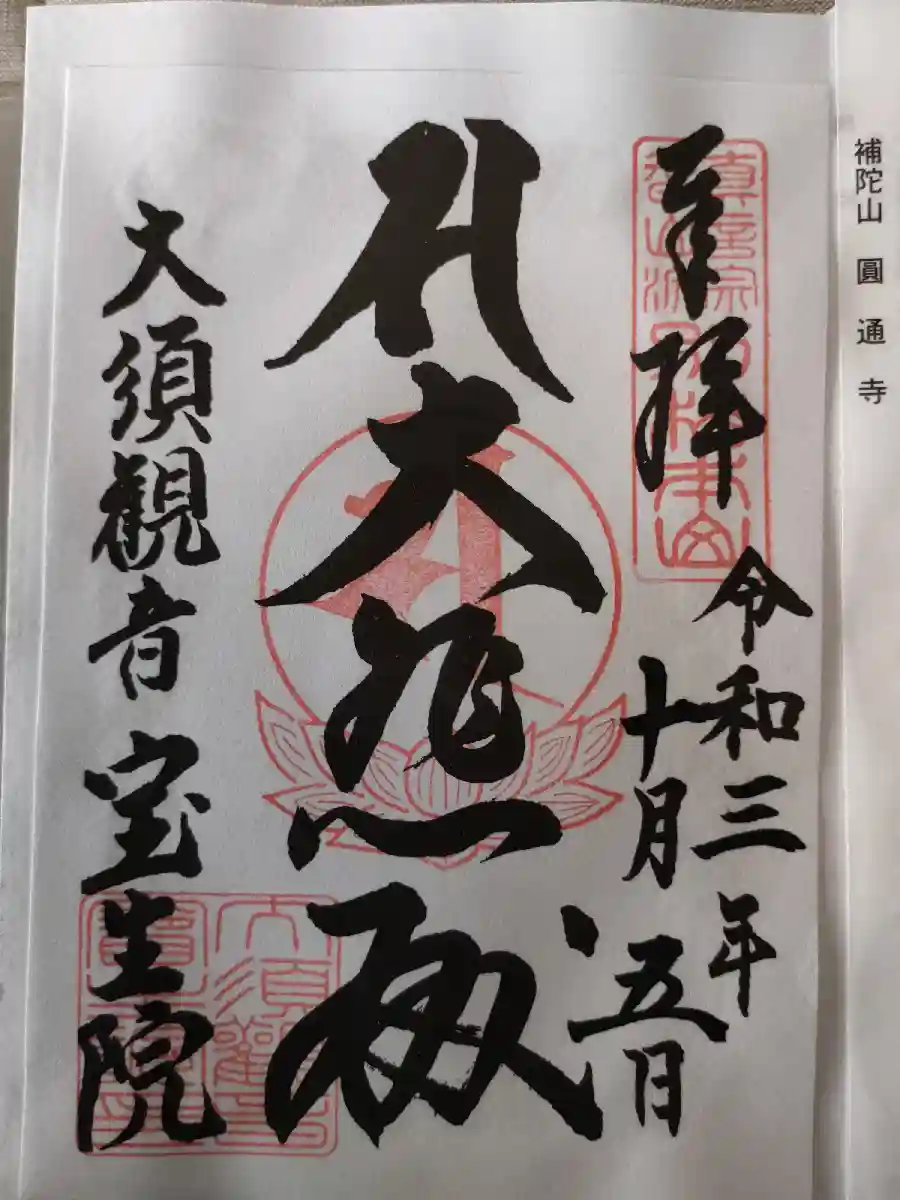 補陀山 圓通寺
奉拝
令和三年
十月五日
大悲殿
大須観音 宝生院
大須観音